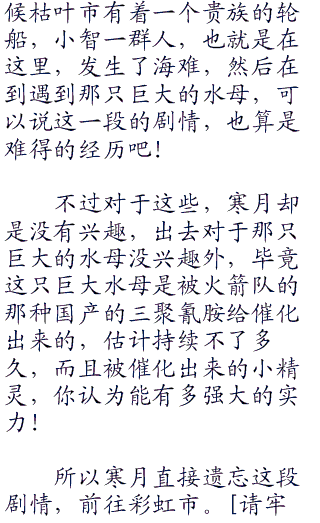 候枯叶市有着一个贵族的轮
船，小智一群人，也就是在
这里，发生了海难，然后在
到遇到那只巨大的水母，可
以说这一段的剧情，也算是
难得的经历吧！
不过对于这些，寒月却
是没有兴趣，出去对于那只
巨大的水母没兴趣外，毕竟
这只巨大水母是被火箭队的
那种国产的三聚氰胺给催化
出来的，估计持续不了多
久，而且被催化出来的小精
灵，你认为能有多强大的实
力！
所以寒月直接遗忘这段
剧情，前往彩虹市。[请牢